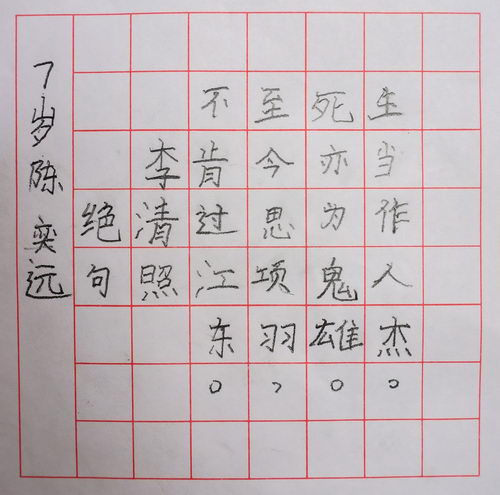 生当作人杰。
死亦为鬼雄。
至今思项羽，
不肯过江东。
李清照
绝句
7岁陈奕远